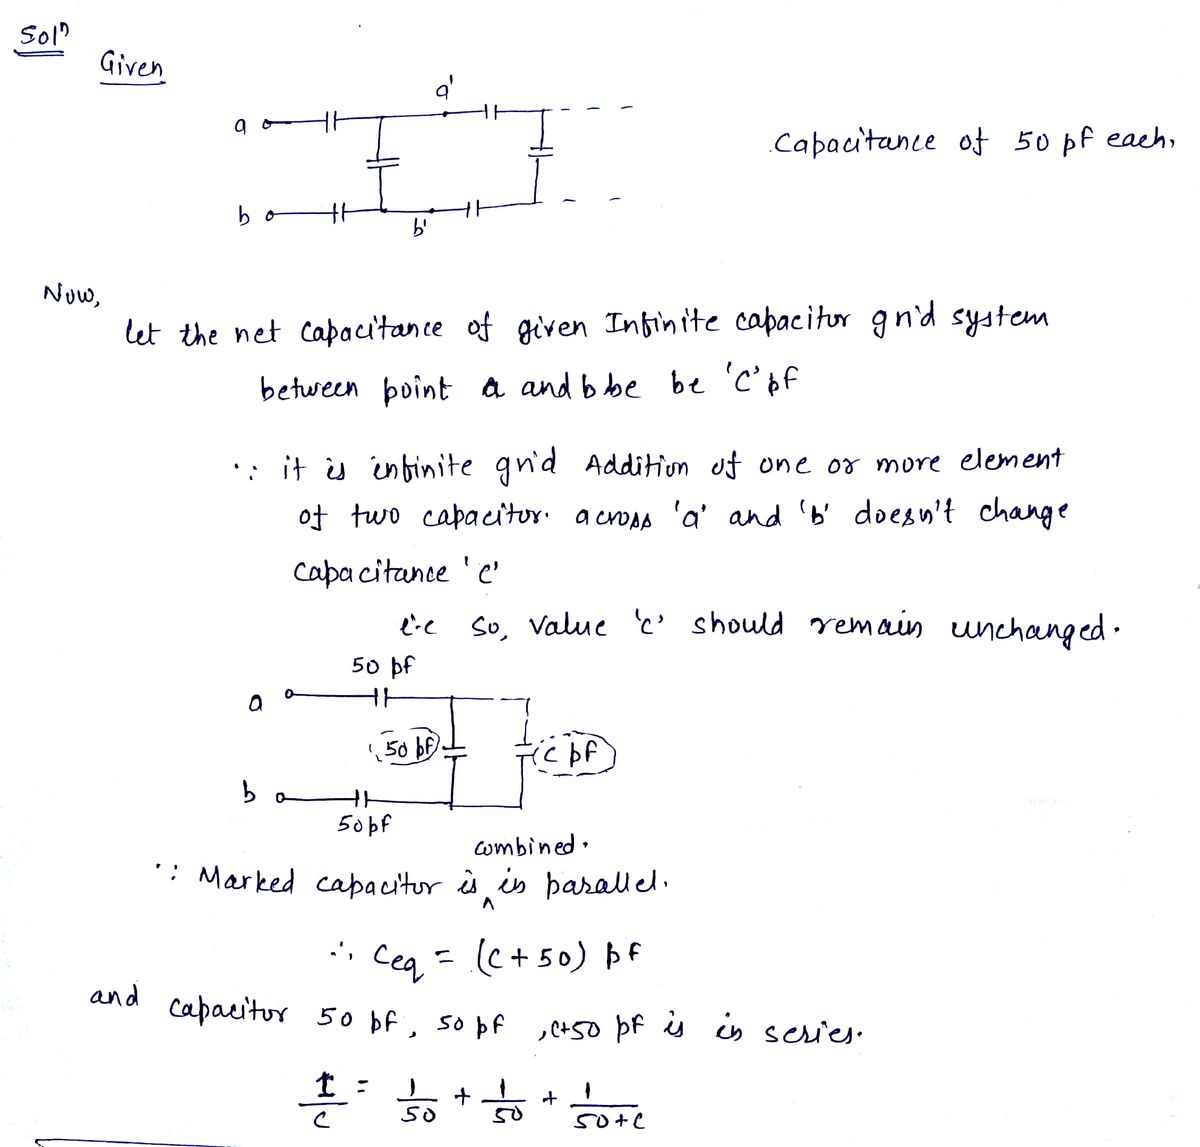 Solⁿ
Given
a'
a
b
b'
Capacitance of 50 pf each,
Now,
let the net capacitance of given Infinite capacitor grid system
between point a and b be be 'C' pf
∵ it is infinite grid Addition of one or more element
of two capacitor. across 'a' and 'b' doesn't change
capacitance 'c'
i.e so, value 'c' should remain unchanged.
50 pf
a
50 pf
c pf
b
50pf
combined.
∵ Marked capacitor is ^ in parallel.
∴ Ceq = (C + 50) pf
and capacitor 50 pf, 50 pf , c+50 pf is in series.
1/C = 1/50 + 1/50 + 1/50+C